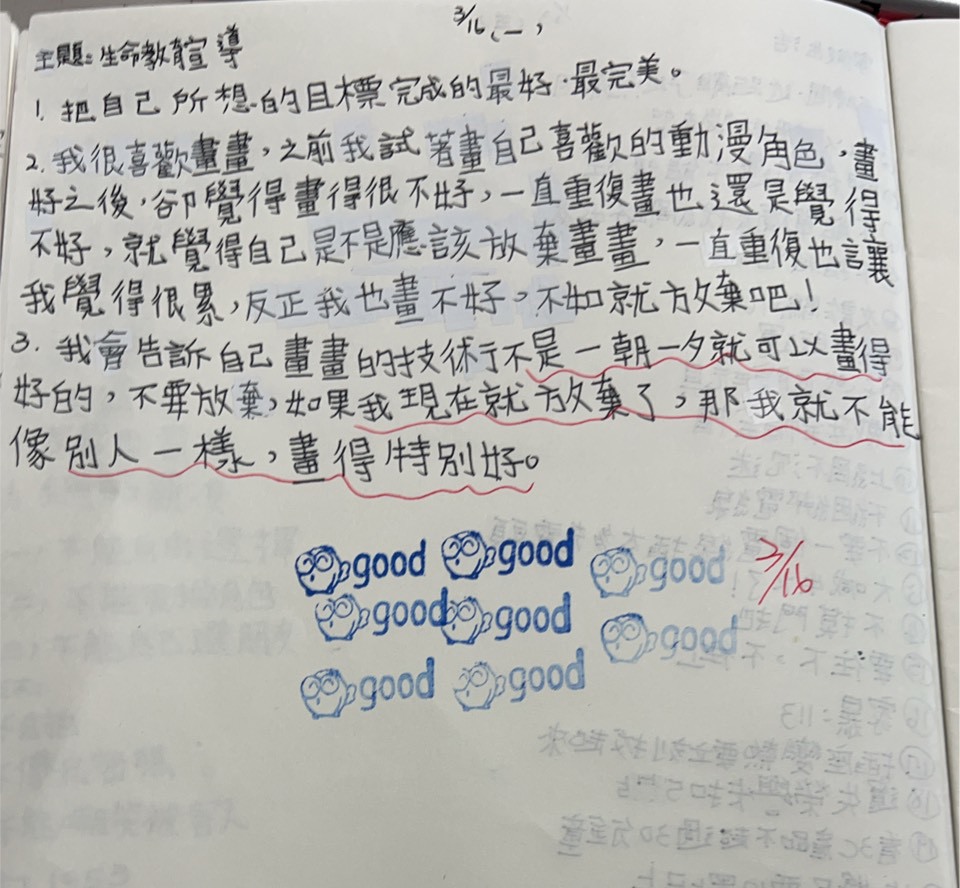 3/16(一)
主題:生命教育宣導
1.把自己所想的目標完成的最好、最完美。
2.我很喜歡畫畫,之前我試著畫自己喜歡的動漫角色,畫
好之後,卻覺得畫得很不好,一直重復畫也還是覺得
不好,就覺得自己是不是應該放棄畫畫,一直重復也讓
我覺得很累,反正我也畫不好,不如就放棄吧!
3.我會告訴自己畫畫的技術行不是一朝一夕就可以畫得
好的,不要放棄,如果我現在就放棄了,那我就不能
像別人一樣,畫得特別好。
good good good 3/16
good good good
good good